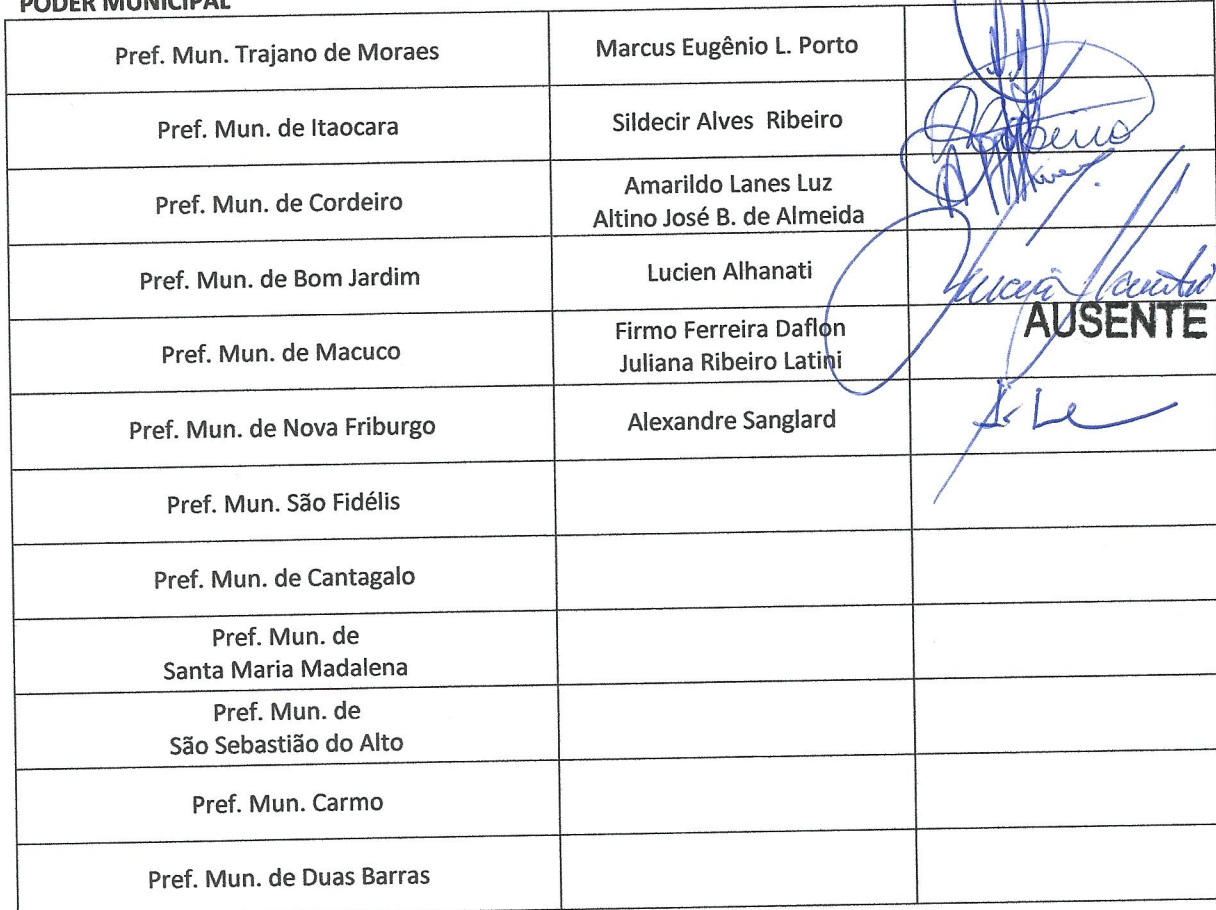 PODER MUNICIPAL
Pref. Mun. Trajano de Moraes
Marcus Eugênio L. Porto
Pref. Mun. de Itaocara
Sildecir Alves  Ribeiro
Pref. Mun. de Cordeiro
Amarildo Lanes Luz
Altino José B. de Almeida
Pref. Mun. de Bom Jardim
Lucien Alhanati
Pref. Mun. de Macuco
Firmo Ferreira Daflon
Juliana Ribeiro Latini
AUSENTE
Pref. Mun. de Nova Friburgo
Alexandre Sanglard
Pref. Mun. São Fidélis
Pref. Mun. de Cantagalo
Pref. Mun. de
Santa Maria Madalena
Pref. Mun. de
São Sebastião do Alto
Pref. Mun. Carmo
Pref. Mun. de Duas Barras